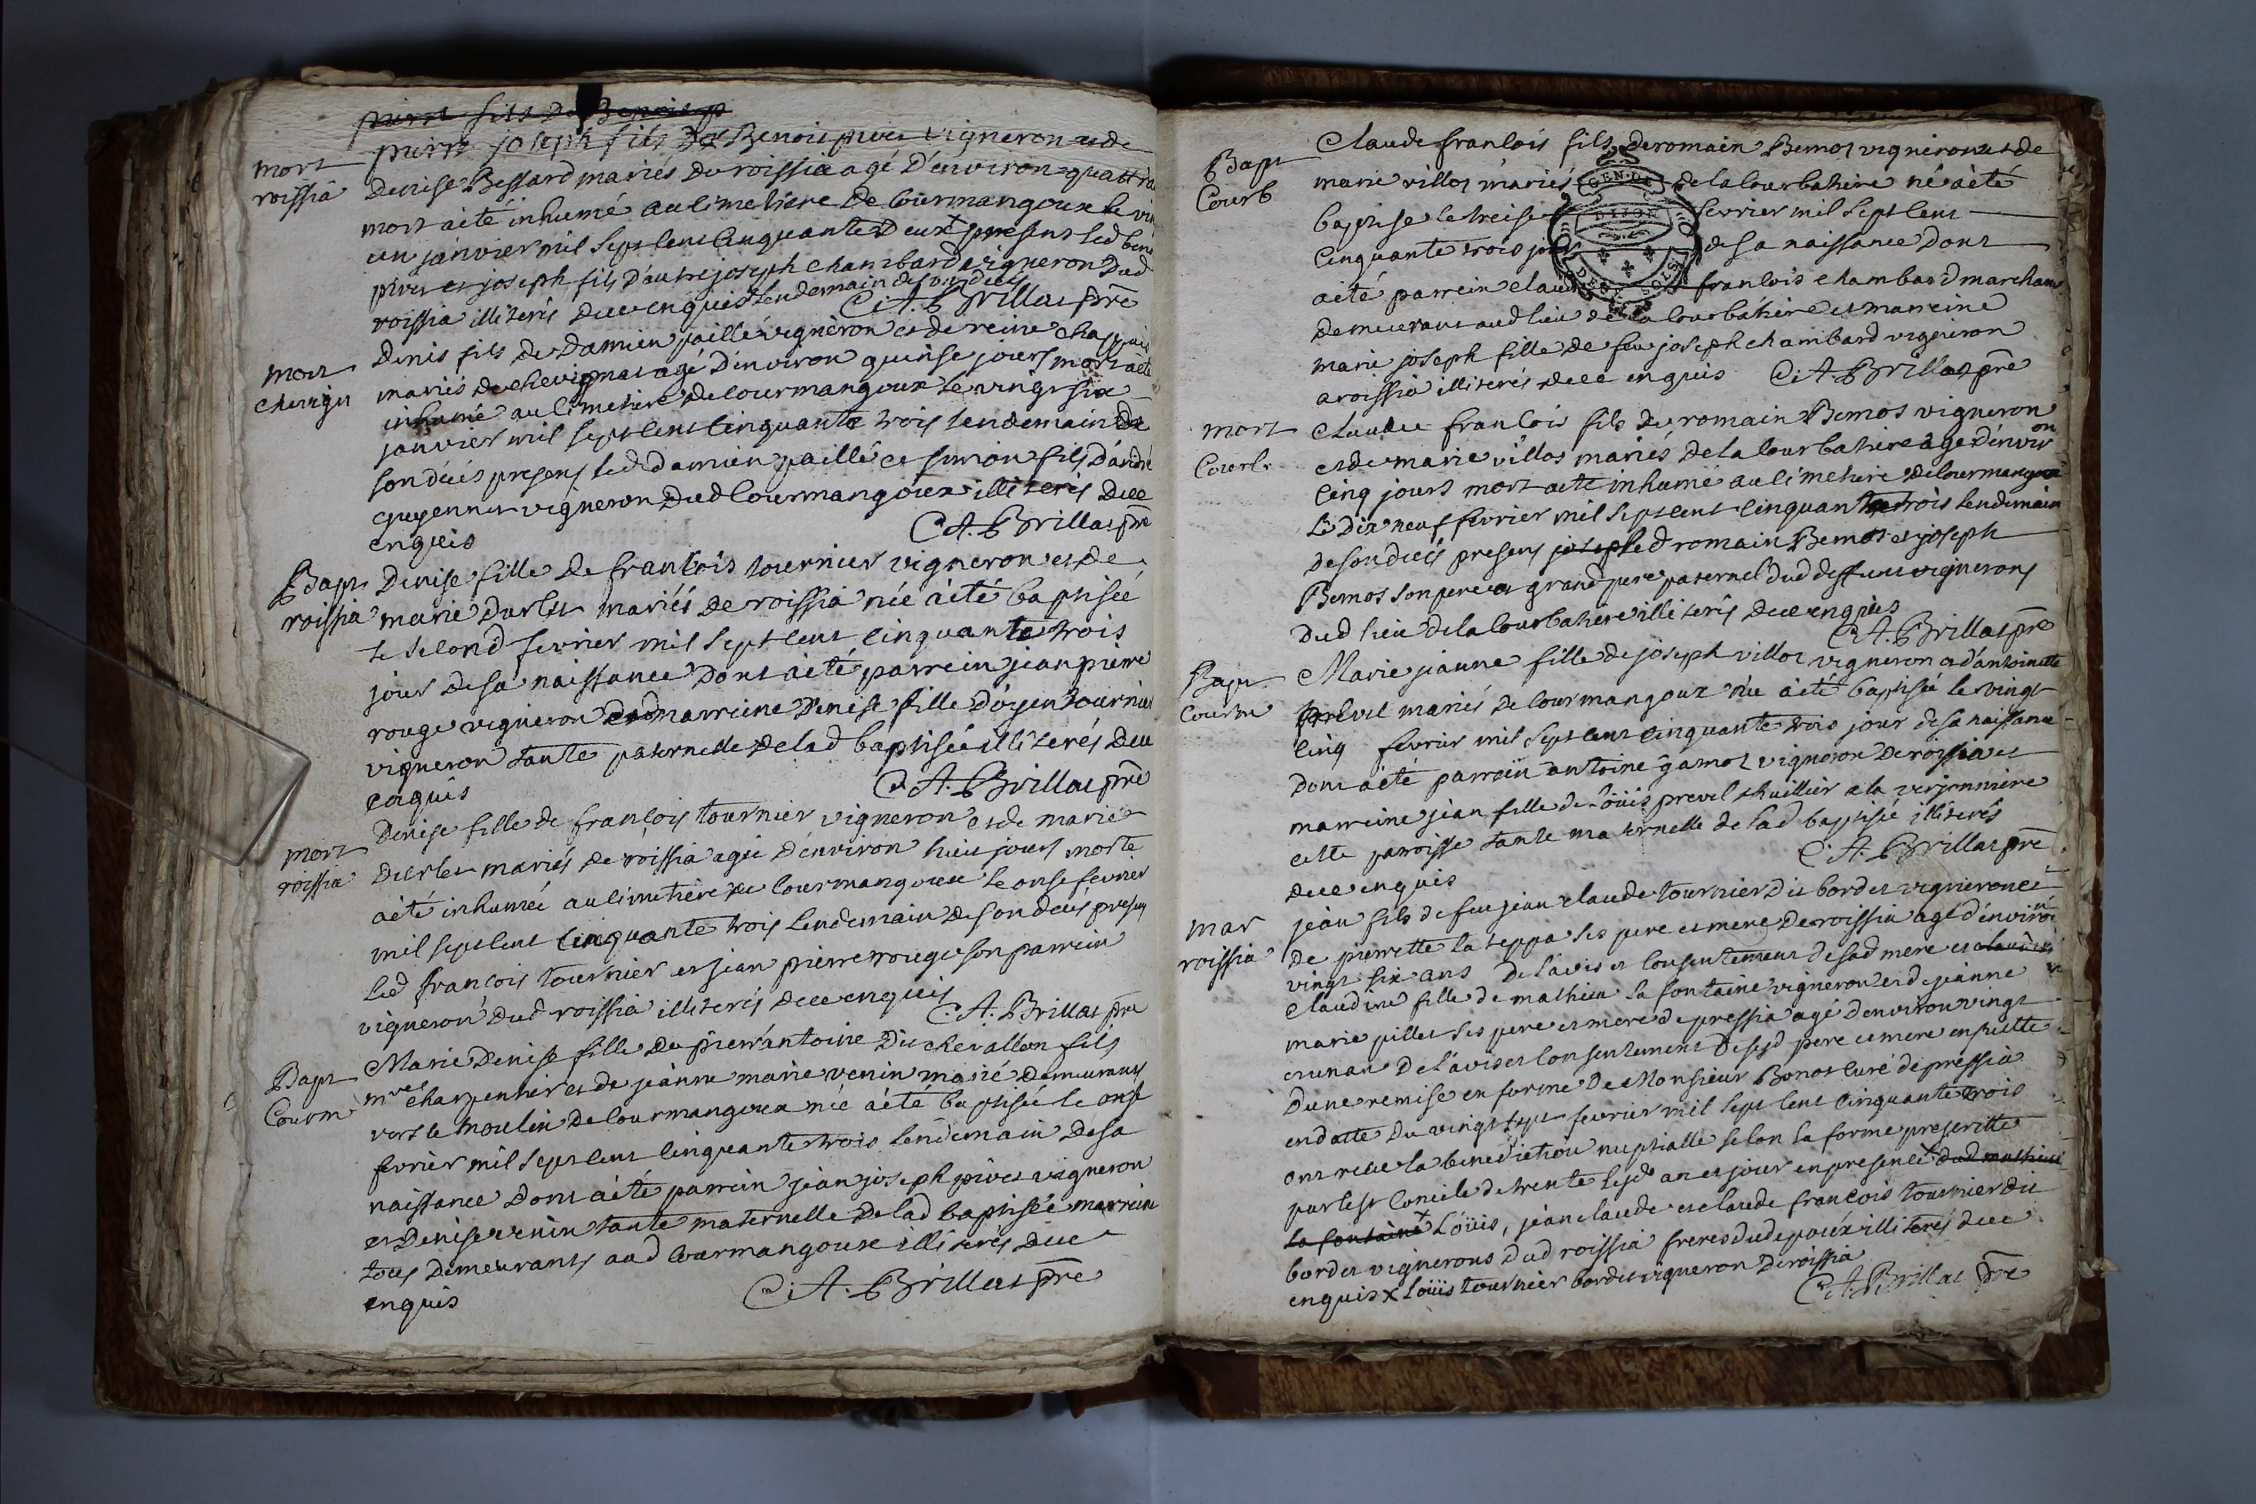 pierre fils de Benois p
mort
roissia
pierre joseph fils de Benois pivet vigneron et de
Denise Bessard mariés de roissia agé d'environ quattr
mort a èté inhumé au cimetiere de courmangoux le vin
un janvier mil sept cent cinquante deux presens led ben
pivet et joseph fils d'autre joseph chambard vigneron dud
roissia illiterés de ce enquis lendemain de son décés
C. A. Brillat prê
mort
chevign
Denis fils de Damien paillé vigneron et de reine chappuis
mariés de chevignat agé d'environ quinse jours mort a èté
inhumé au cimetiere de courmangoux le vingt six
janvier mil sept cent cinquante trois lendemain de
son décés presens led damien paillé et simon fils d'andré
guyennet vigneron dud courmangoux illiterés de ce
enquis
C. A. Brillat prê
Bapt
roissia
Denise fille de francois tournier vigneron et de
marie durlet mariés de roissia née a èté baptisée
le second fevrier mil sept cent cinquante trois
jour de sa naissance dont a èté parrein jean pierre
rouge vigneron et marreine denise fille d'oyen tournier
vigneron tante paternelle de lad baptisée illiterés de ce
enquis
C. A. Brillat prê
mort
roissia
Denise fille de françois tournier vigneron et de marie
durlet mariés de roissia agée d'environ huit jours morte
a èté inhumée au cimetiere de courmangoux le onse fevrier
mil sept cent cinquante trois lendemain de son decés presens
led francois tournier et jean pierre rouge son parrein
vigneron dud roissia illiterés de ce enquis
C. A. Brillat prê
Bapt
Courm
Marie Denise fille de pierr'antoine dit chevallon fils
mre charpentier et de jeanne marie venin marié demeurans
vers le moulin de courmangoux née a èté baptisée le onse
fevrier mil sept cent cinquante trois lendemain de sa
naissance dont a èté parrein jean joseph pivet vigneron
et Denise venin tante maternelle de lad baptisée marreine
tous demeurants aud courmangoux illiterés de ce
enquis
C. A. Brillat prê
Bapt
Courb
Claude francois fils de romain Bemot vigneron et de
marie villot mariés de la courbatiere né a èté
baptisé le treise fevrier mil sept cent
cinquante trois jour de sa naissance dont
a èté parrein claude francois chambard marchand
demeurant aud lieu de la courbatiere et marreine
marie joseph fille de feu joseph chambard vigneron
a roissia illiterés de ce enquis C. A. Brillat prê
mort
Courb
Claude francois fils de romain Bemot vigneron
et de marie villot mariés de la courbatiere agé d'environ
cinq jours mort a èté inhumé au cimetiere de courmangoux
le dix neuf fevrier mil sept cent cinquante trois lendemain
de son decés presens led romain Bemot et joseph
Bemot son pere et grand pere paternel dud deffunt vignerons
dud lieu de la courbatiere illiterés de ce enquis
C. A. Brillat prê
Bapt
Courm
Marie jeanne fille de joseph villot vigneron et d'antoinette
prevel mariés de courmangoux née a èté baptisée le vingt
cinq fevrier mil sept cent cinquante trois jour de sa naissance
dont a èté parrein antoine gamot vigneron de roissia et
marreine jean fille de Loüis prevel thuillier a la verjonniere
cette parroisse tante maternelle de lad baptisée illiterés
de ce enquis
C. A. Brillat prê
mar
roissia
jean fils de feu jean claude tournier dit bordet vigneron et
de pierrette la teppa ses pere et mere de roissia agé d'environ
vingt six ans de l'avis et consentement de sad mere et claudine
claudine fille de mathieu la fontaine vigneron et de jeanne
marie pillet ses pere et mere de pressia agé d'environ vingt
de l'avis et consentement de sesd pere et mere ensuitte
d'une remise en forme de Monsieur Bonot curé de préssia
en datte du vingt sept fevrier mil sept cent cinquante trois
ont recu la benediction nuptialle selon la forme prescritte
par le st Concile de trente lesd an et jour en presence dud mathieu
la fontaine x Loüis, jean claude et claude françois tournier dit
bordet vignerons dud roissia freres dud epoux illiterés de ce
enquis x Loüis tournier bordet vigneron de roissia
C. A. Brillat prê
GEN. DE
DIJON